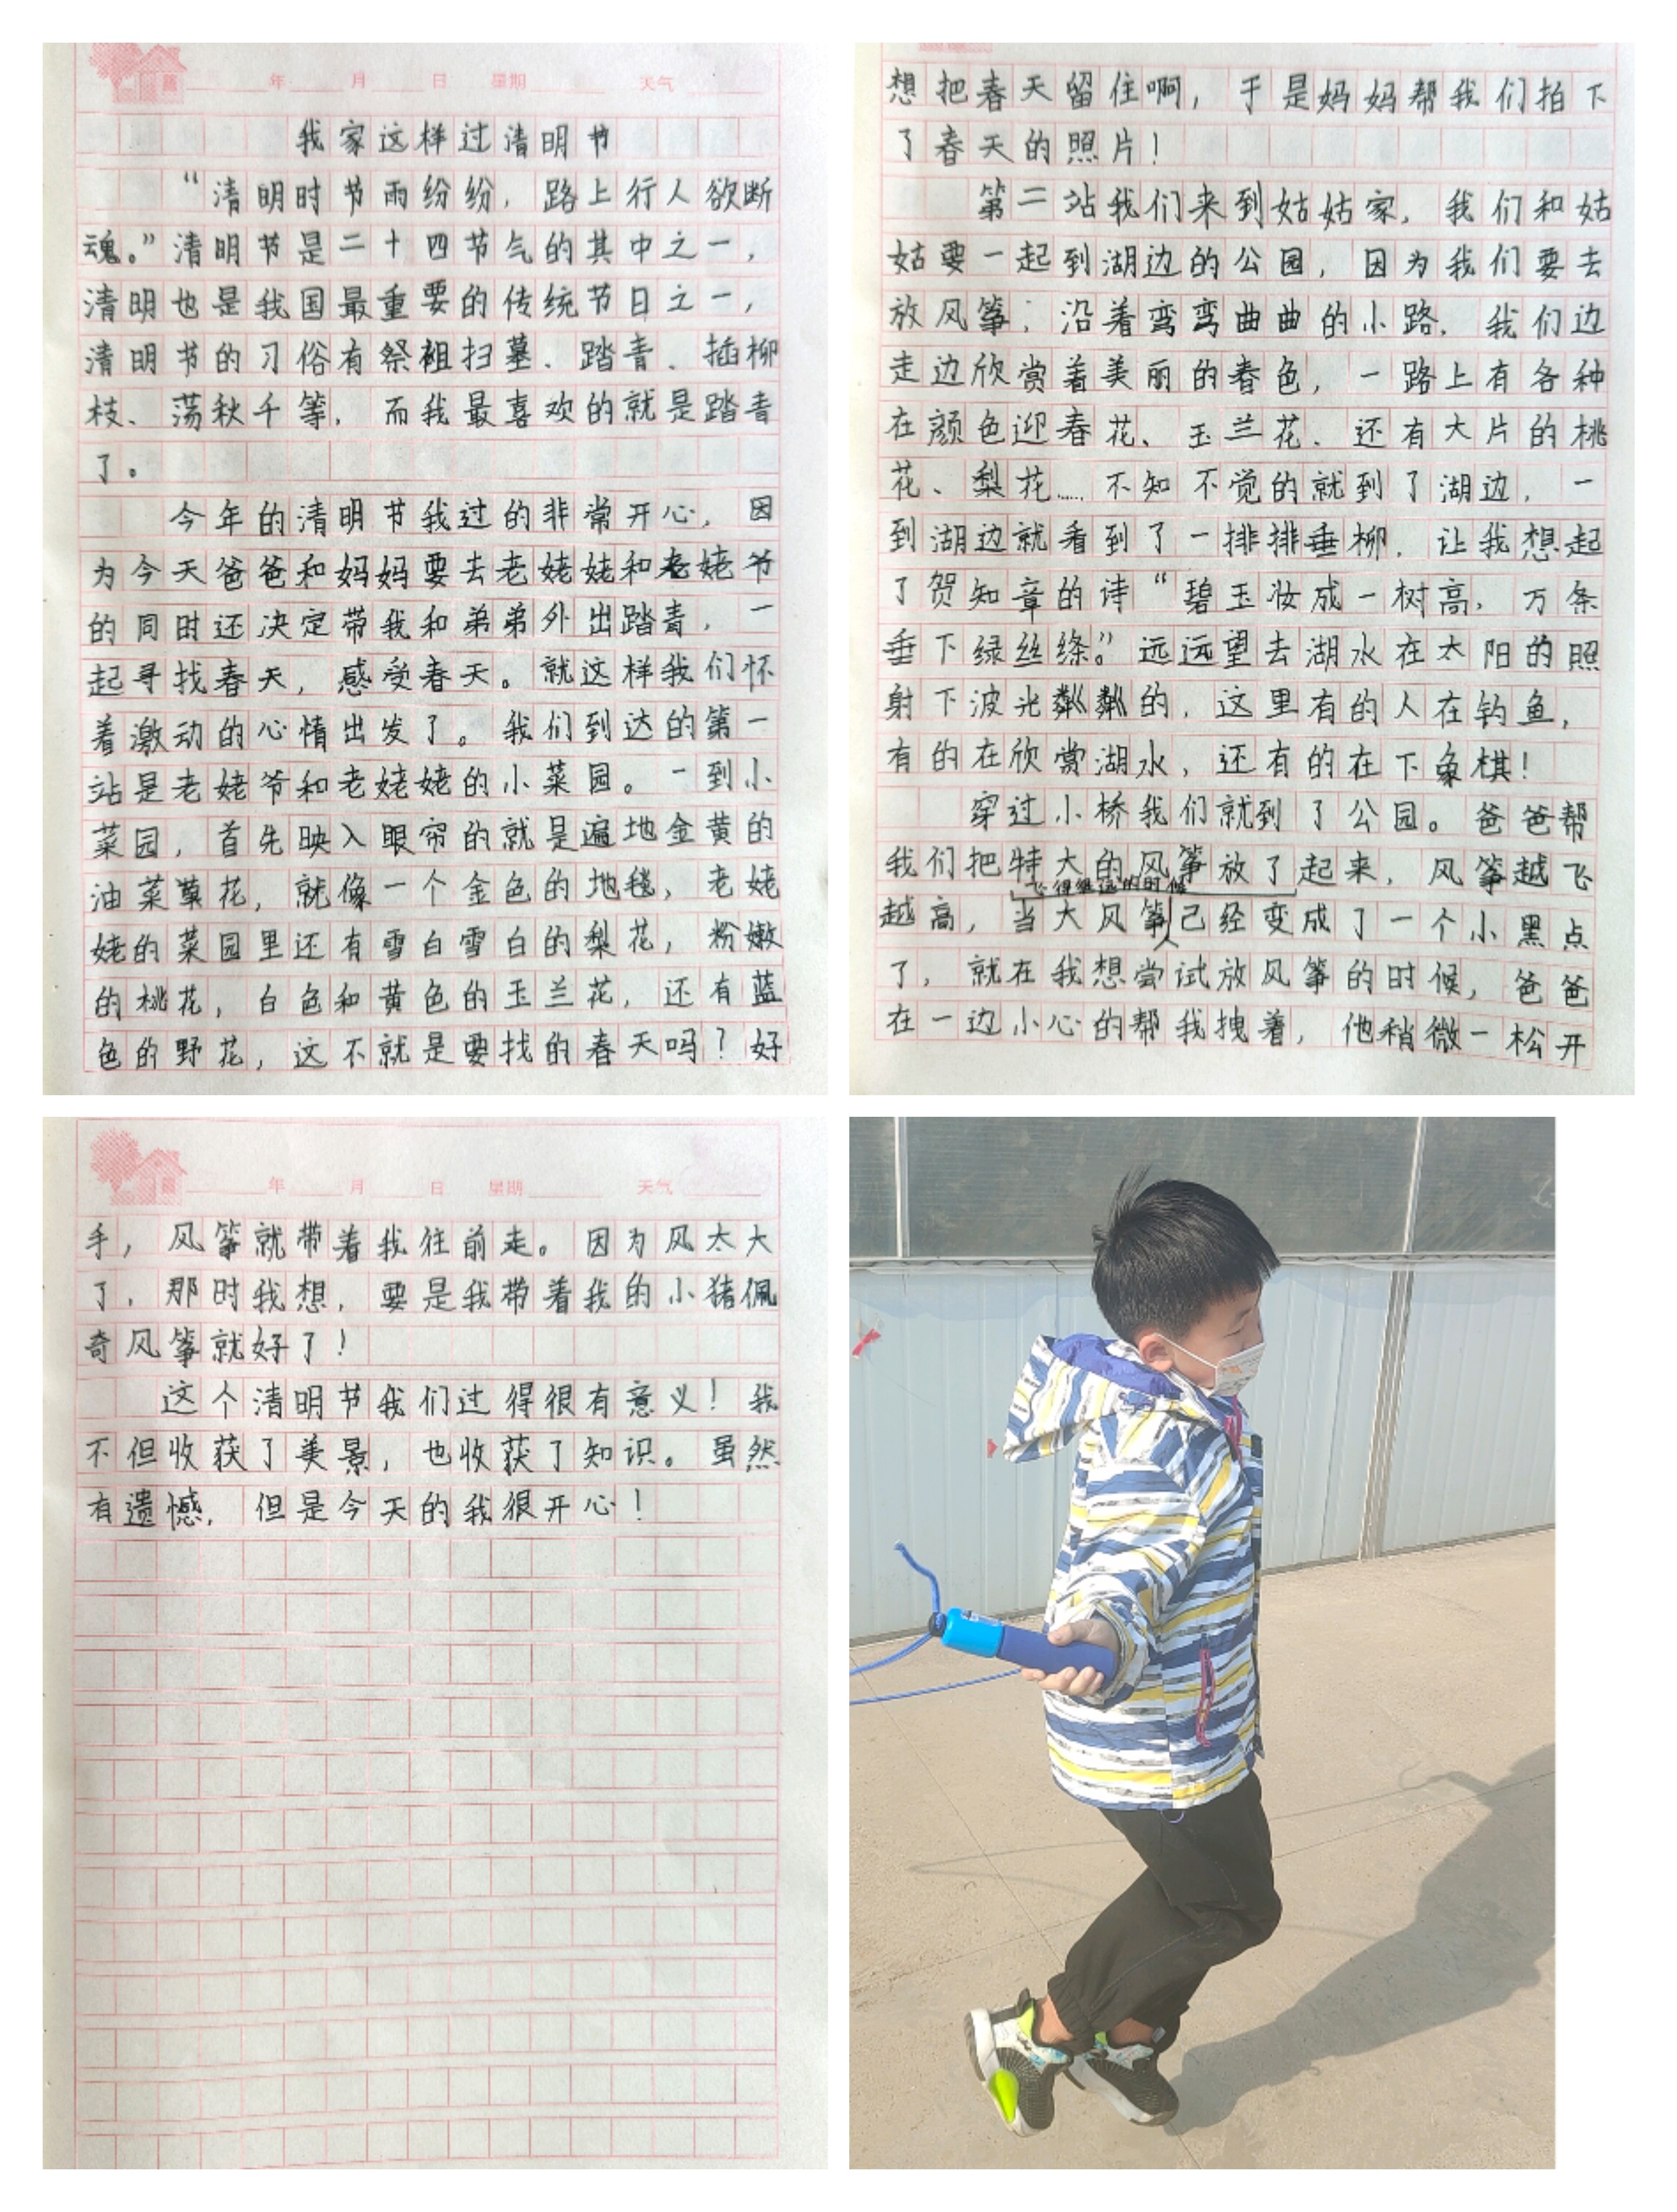 年 月 日 星期 天气
我家这样过清明节
“清明时节雨纷纷，路上行人欲断
魂。”清明节是二十四节气的其中之一，
清明也是我国最重要的传统节日之一，
清明节的习俗有祭祖扫墓、踏青、插柳
枝、荡秋千等，而我最喜欢的就是踏青
了。
今年的清明节我过的非常开心，因
为今天爸爸和妈妈要去老姥姥和老姥爷
的同时还决定带我和弟弟外出踏青，一
起寻找春天，感受春天。就这样我们怀
着激动的心情出发了。我们到达的第一
站是老姥爷和老姥姥的小菜园。一到小
菜园，首先映入眼帘的就是遍地金黄的
油菜草花，就像一个金色的地毯，老姥
姥的菜园里还有雪白雪白的梨花，粉嫩
的桃花，白色和黄色的玉兰花，还有蓝
色的野花，这不就是要找的春天吗？好
想把春天留住啊，于是妈妈帮我们拍下
了春天的照片！
第二站我们来到姑姑家，我们和姑
姑要一起到湖边的公园，因为我们要去
放风筝，沿着弯弯曲曲的小路，我们边
走边欣赏着美丽的春色，一路上有各种
在颜色迎春花、玉兰花、还有大片的桃
花、梨花……不知不觉的就到了湖边，一
到湖边就看到了一排排垂柳，让我想起
了贺知章的诗“碧玉妆成一树高，万条
垂下绿丝绦。”远远望去湖水在太阳的照
射下波光粼粼的，这里有的人在钓鱼，
有的在欣赏湖水，还有的在下象棋！
穿过小桥我们就到了公园。爸爸帮
我们把特大的风筝放了起来，风筝越飞
飞得很远的时候
越高，当大风筝已经变成了一个小黑点
了，就在我想尝试放风筝的时候，爸爸
在一边小心的帮我拽着，他稍微一松开
年 月 日 星期 天气
手，风筝就带着我往前走。因为风太大
了，那时我想，要是我带着我的小猪佩
奇风筝就好了！
这个清明节我们过得很有意义！我
不但收获了美景，也收获了知识。虽然
有遗憾，但是今天的我很开心！